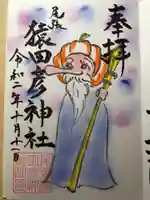 奉拝
尾張
猿田彦神社
令和二年十月十一日